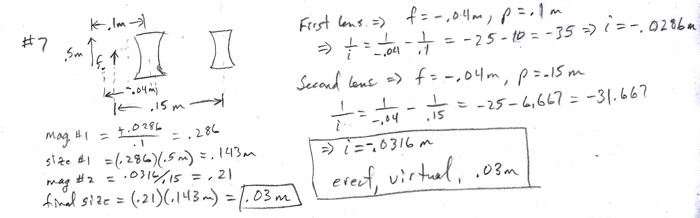 #7
.1m
.5m
f
-.04m
.15m
mag #1 = +.0286/.1 = .286
size #1 = (.286)(.5m) = .143m
mag #2 = .0316/.15 = .21
final size = (.21)(.143m) = .03m
First lens => f = -.04m, p = .1m
=> 1/i = 1/-.04 - 1/.1 = -25 - 10 = -35 => i = -.0286m
Second lens => f = -.04m, p = .15m
1/i = 1/-.04 - 1/.15 = -25 - 6.667 = -31.667
=> i = -.0316m
erect, virtual, .03m